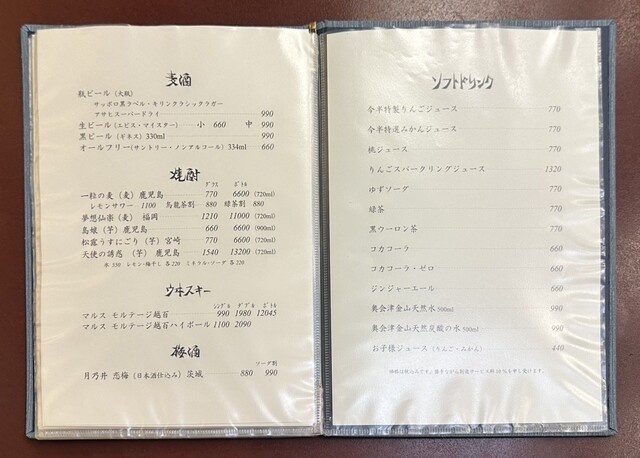 麦酒
瓶ビール（大瓶）
サッポロ黒ラベル・キリンクラシックラガー
アサヒスーパードライ 990
生ビール（エビス・マイスター） 小 660 中 990
黒ビール（ギネス）330ml 990
オールフリー（サントリー・ノンアルコール）334ml 660
焼酎
グラス ボトル
一粒の麦（麦）鹿児島 770 6600（720ml）
レモンサワー 1100 烏龍茶割 880 緑茶割 880
夢想仙楽（麦） 福岡 1210 11000（720ml）
島娘（芋）鹿児島 660 6600（900ml）
松露うすにごり（芋）宮崎 770 6600（720ml）
天使の誘惑（芋）鹿児島 1540 13200（720ml）
氷 330 レモン・梅干し 各220 ミネラル・ソーダ 各220
ウヰスキー
シングル ダブル ボトル
マルス モルテージ越百 990 1980 12045
マルス モルテージ越百ハイボール 1100 2090
梅酒
ソーダ割
月乃井 恋梅（日本酒仕込み）茨城 880 990
ソフトドリンク
今半特製りんごジュース 770
今半特選みかんジュース 770
桃ジュース 770
りんごスパークリングジュース 1320
ゆずソーダ 770
緑茶 770
黒ウーロン茶 770
コカコーラ 660
コカコーラ・ゼロ 660
ジンジャーエール 660
奥会津金山天然水 500ml 990
奥会津金山天然炭酸の水 500ml 990
お子様ジュース（りんご・みかん） 440
価格は税込みです。誠勝手ながら別途サービス料10%を申し受けます。